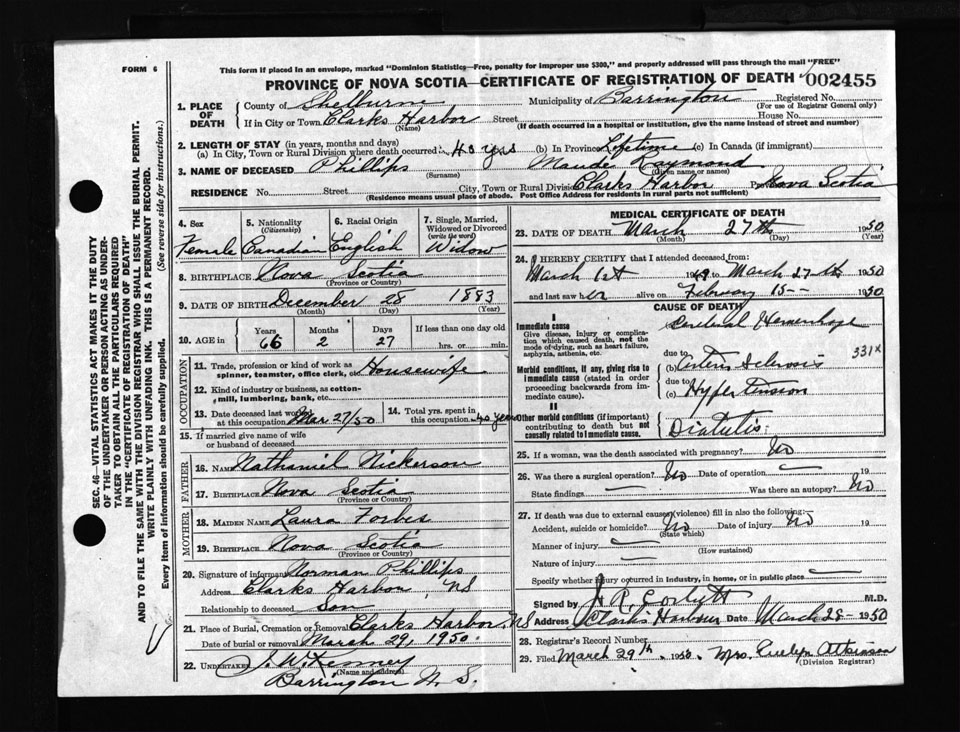 FORM 6
This form if placed in an envelope, marked "Dominion Statistics—Free, penalty for improper use $300," and properly addressed will pass through the mail "FREE"
PROVINCE OF NOVA SCOTIA—CERTIFICATE OF REGISTRATION OF DEATH 002455
SEC. 46—VITAL STATISTICS ACT MAKES IT THE DUTY
OF THE UNDERTAKER OR PERSON ACTING AS UNDER-
TAKER TO OBTAIN ALL THE PARTICULARS REQUIRED
IN THE "CERTIFICATE OF REGISTRATION OF DEATH"
AND TO FILE THE SAME WITH THE DIVISION REGISTRAR WHO SHALL ISSUE THE BURIAL PERMIT.
WRITE PLAINLY WITH UNFADING INK. THIS IS A PERMANENT RECORD.
Every item of information should be carefully supplied. (See reverse side for instructions.)
1. PLACE OF DEATH
County of Shelburne Municipality of Barrington Registered No.
(For use of Registrar General only)
If in City or Town Clarks Harbor Street House No.
(Name) (If death occurred in a hospital or institution, give the name instead of street and number)
2. LENGTH OF STAY (in years, months and days)
(a) In City, Town or Rural Division where death occurred 40 yrs (b) In Province Lifetime (c) In Canada (if immigrant)
3. NAME OF DECEASED Phillips Maude Raymond
(Surname) (Given name or names)
RESIDENCE No. Street City, Town or Rural Division Clarks Harbor Nova Scotia
(Residence means usual place of abode. Post Office Address for residents in rural parts not sufficient)
4. Sex
Female
5. Nationality
(Citizenship)
Canadian
6. Racial Origin
English
7. Single, Married,
Widowed or Divorced
(write the word)
Widow
8. BIRTHPLACE Nova Scotia
(Province or Country)
9. DATE OF BIRTH December 28 1883
(Month) (Day) (Year)
10. AGE in
Years Months Days If less than one day old
66 2 27 hrs. or min.
OCCUPATION
11. Trade, profession or kind of work as
spinner, teamster, office clerk, etc. Housewife
12. Kind of industry or business, as cotton-
mill, lumbering, bank, etc.
13. Date deceased last worked
at this occupation Mar 27/50
14. Total yrs. spent in
this occupation 40 years
15. If married give name of wife
or husband of deceased
FATHER
16. NAME Nathaniel Nickerson
17. BIRTHPLACE Nova Scotia
(Province or Country)
MOTHER
18. MAIDEN NAME Laura Forbes
19. BIRTHPLACE Nova Scotia
(Province or Country)
20. Signature of informant Norman Phillips
Address Clarks Harbor, NS
Relationship to deceased Son
21. Place of Burial, Cremation or Removal Clarks Harbor, NS
Date of burial or removal March 29, 1950.
22. UNDERTAKER J. W. Kenney
(Name and address)
Barrington N. S.
MEDICAL CERTIFICATE OF DEATH
23. DATE OF DEATH March 27th 1950
(Month) (Day) (Year)
24. I HEREBY CERTIFY that I attended deceased from:
March 1st 1949 to March 27th 1950
and last saw her alive on February 15-- 1950
CAUSE OF DEATH
I
Immediate cause
Give disease, injury or complication
which caused death, not the
mode of dying, such as heart failure,
asphyxia, asthenia, etc.
Cerebral Hemorrhage
331X
Morbid conditions, if any, giving rise to
immediate cause (stated in order
proceeding backwards from immediate
cause).
due to
(b) Arterio Sclerosis
due to
(c) Hyper Tension
II
Other morbid conditions (if important)
contributing to death but not
causally related to immediate cause.
Diabetis
25. If a woman, was the death associated with pregnancy? No
26. Was there a surgical operation? No Date of operation 19
State findings Was there an autopsy? No
27. If death was due to external causes (violence) fill in also the following:
Accident, suicide or homicide? No Date of injury No 19
(State which)
Manner of injury
(How sustained)
Nature of injury
Specify whether injury occurred in industry, in home, or in public place
Signed by M.D.
Address Clarks Harbour Date March 28- 1950
28. Registrar's Record Number
29. Filed March 29th 1950. Mrs. Evelyn Atkinson
(Division Registrar)